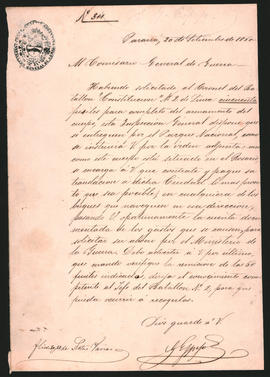 Paraná, 20 de Setiembre de 18
Al Comisario General de Guerra
Habiendo solicitado el Coronel del Ba
tallon Constitucion Nº 2 de Linea, cincuenta
fusiles para completo del armamento del
cuerpo, esta Inspeccion General dispone que
se entreguen por el Parque Nacional, como
se instruirá V por la orden adjunta; mas
como este cuerpo esté en el Rosario
se encarga á V que contrate y pague su
á dicha Ciudad lo mas pron
to que sea posible, en cualquiera de los
buques que naveguen en esa direccion,
pasando V oportunamente la cuenta docu
mentada de los gastos que se causen, para
solicitar su abono por el Ministerio de
la Guerra. Debo advertir á V por ultimo,
que cuando verifique la remision de los 50
fusiles indicados, dirija el conocimiento com
petente al Jefe del Batallon Nº 2, para que
pueda ocurrir á recogerlos.
Dios guarde á V.